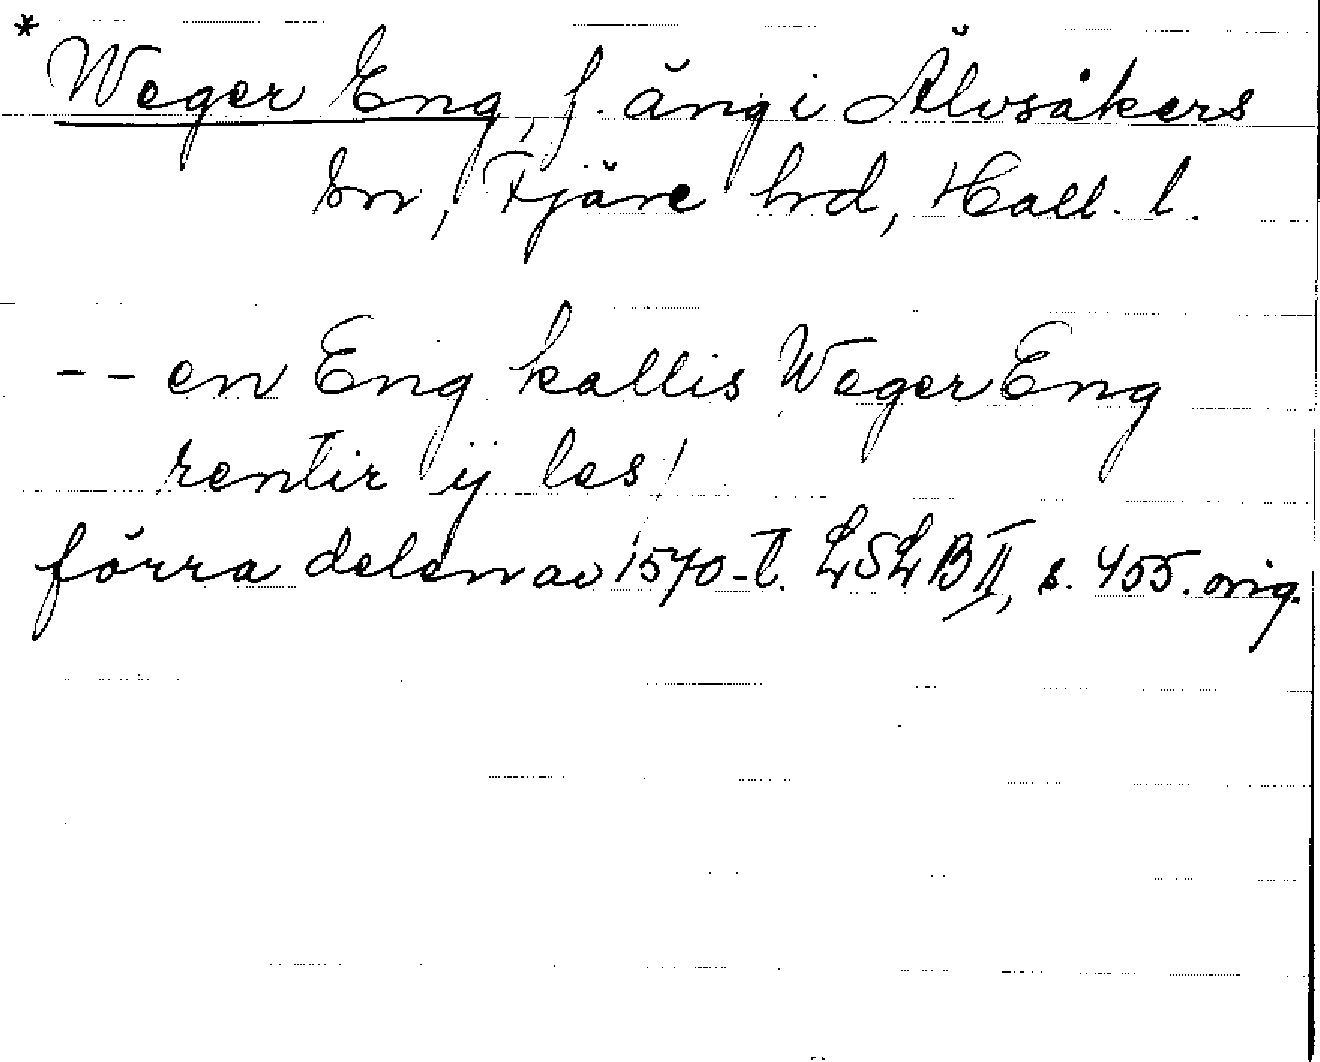 * Weger Eng, f. äng i Älvsåkers
sn, Fjäre hrd, Hall. l.
-- en Eng kallis Weger Eng
rentir ij les /
förra delen av 1570-t. LSLB II, s. 455. orig.